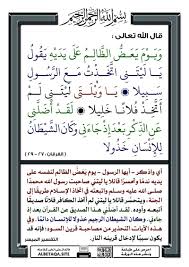 بسم الله الرحمن الرحيم
قال الله تعالى :
وَيَوْمَ يَعَضُّ الظَّالِمُ عَلَىٰ يَدَيْهِ يَقُولُ
يَا لَيْتَنِي اتَّخَذْتُ مَعَ الرَّسُولِ
سَبِيلًا ۞ يَا وَيْلَتَىٰ لَيْتَنِي لَمْ
أَتَّخِذْ فُلَانًا خَلِيلًا ۞ لَقَدْ أَضَلَّنِي
عَنِ الذِّكْرِ بَعْدَ إِذْ جَاءَنِي وَكَانَ الشَّيْطَانُ
لِلْإِنسَانِ خَذُولًا
(الفرقان: ٢٧ - ٢٩)
أي واذكر - أيها الرسول - يوم يعض الظالم لنفسه على
يديه ندمًا وتحسرًا قائلا يا ليتني صاحبت رسول الله محمدًا
صلى الله عليه وسلم واتبعته في اتخاذ الإسلام طريقًا إلى
الجنة، ويتحسر قائلا يا ليتني لم أتخذ الكافر فلانًا صديقًا
أتبعه وأوده. لقد أضلني هذا الصديق عن القرآن بعد إذ
جاءني. وكان الشيطان الرجيم خذولا للإنسان دائمًا. وفي
هذه الآيات التحذير من مصاحبة قرين السوء؛ فإنه قد
يكون سببًا لإدخال قرينه النار.
التفسير الميسر
ALBETAQA.SITE